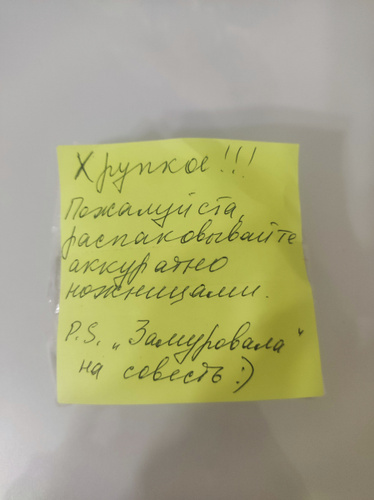 Хрупкое!!!
Пожалуйста,
распаковывайте
аккуратно
ножницами.
P.S. „Замуровала"
на совесть :)